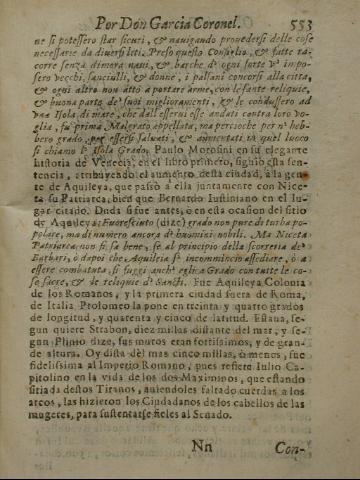 Por Don Garcia Coronel. 553
ne si potessero star sicuri, & nauigando prouedersi delle cose
necessarie da diuersi liti. Preso questo Consiglio, & fatte ra-
corre senza dimora naui, & barche d'ogni sorte v'impo-
sero vecchi, fanciulli, & donne, i paesani concorsi alla citta,
& ogni altro non atto à portar arme, con le sante reliquie,
& buona parte de' suoi miglioramenti, & le condussero ad
vna Isola di mare, che dall'esserui esse andati contra lor vo-
glia, fu prima Malgrato appellata, ma percioche per n' hebb-
bero grado, per essersi saluati, & aumentati in quel luoco
si chiamo l' Isola Grado. Paulo Morosini en su elegante
historia de Venecia, en el libro primero, siguió esta sen-
tencia, atribuyendo el aumento desta ciudad, à la gen-
te de Aquileya, que passò a ella juntamente con Nice-
ta su Patriarca, bien que Bernardo Iustiniano en el lu-
gar citado. Duda si fue antes, ò en esta ocasion del sitio
de Aquileya: Fuoresciuto (dize) grado non pure di turba po-
polare, ma di numero ancora di huomini nobili. Ma Niceta
Patriarca non si sa bene, se al principio della scorreria de'
Barbari, ò dapoi che Aquileia si incominciò assediare, ò a
essere combatuta, si fuggi anch' egli a Grado con tutte le co-
se sacre, & le reliquie de' Sancti. Fue Aquileya Colonia
de los Romanos, y la primera ciudad fuera de Roma,
de Italia. Ptolomeo la pone en treinta y quatro grados
de longitud, y quarenta y cinco de latitud. Estaua, se-
gun quiere Strabon, diez millas distante del mar, y se-
gun Plinio dize, sus muros eran fortissimos, y de gran-
de altura. Oy dista del mar cinco millas, ò menos, fue
fidelissima al Imperio Romano, pues refiere Iulio Ca-
pitolino en la vida de los dos Maximinos, que estando
sitiada destos Tiranos, auiendoles faltado cuerdas a los
arcos, las hizieron los Ciudadanos de los cabellos de las
mugeres, para sustentarse fieles al Senado.
Nn Con-